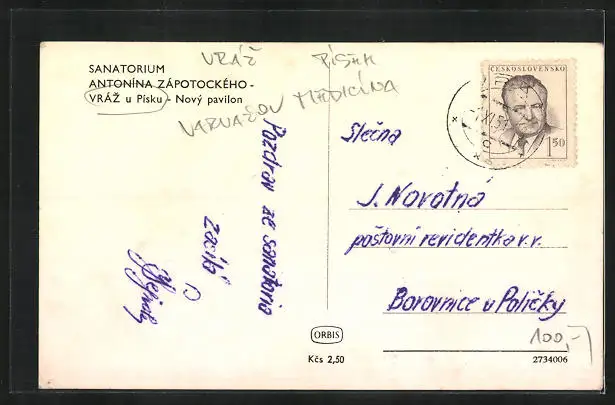 SANATORIUM
ANTONÍNA ZÁPOTOCKÉHO -
VRÁŽ u Písku - Nový pavilon
VRÁŽ PÍSEK
VARVAŽOV MEDICÍNA
ČESKOSLOVENSKO
1 50
Pozdrav ze sanatoria
zasílá
Slečna
J. Novotná
poštovní revidentka v.v.
Borovnice u Poličky
100,-
ORBIS
Kčs 2,50
2734006